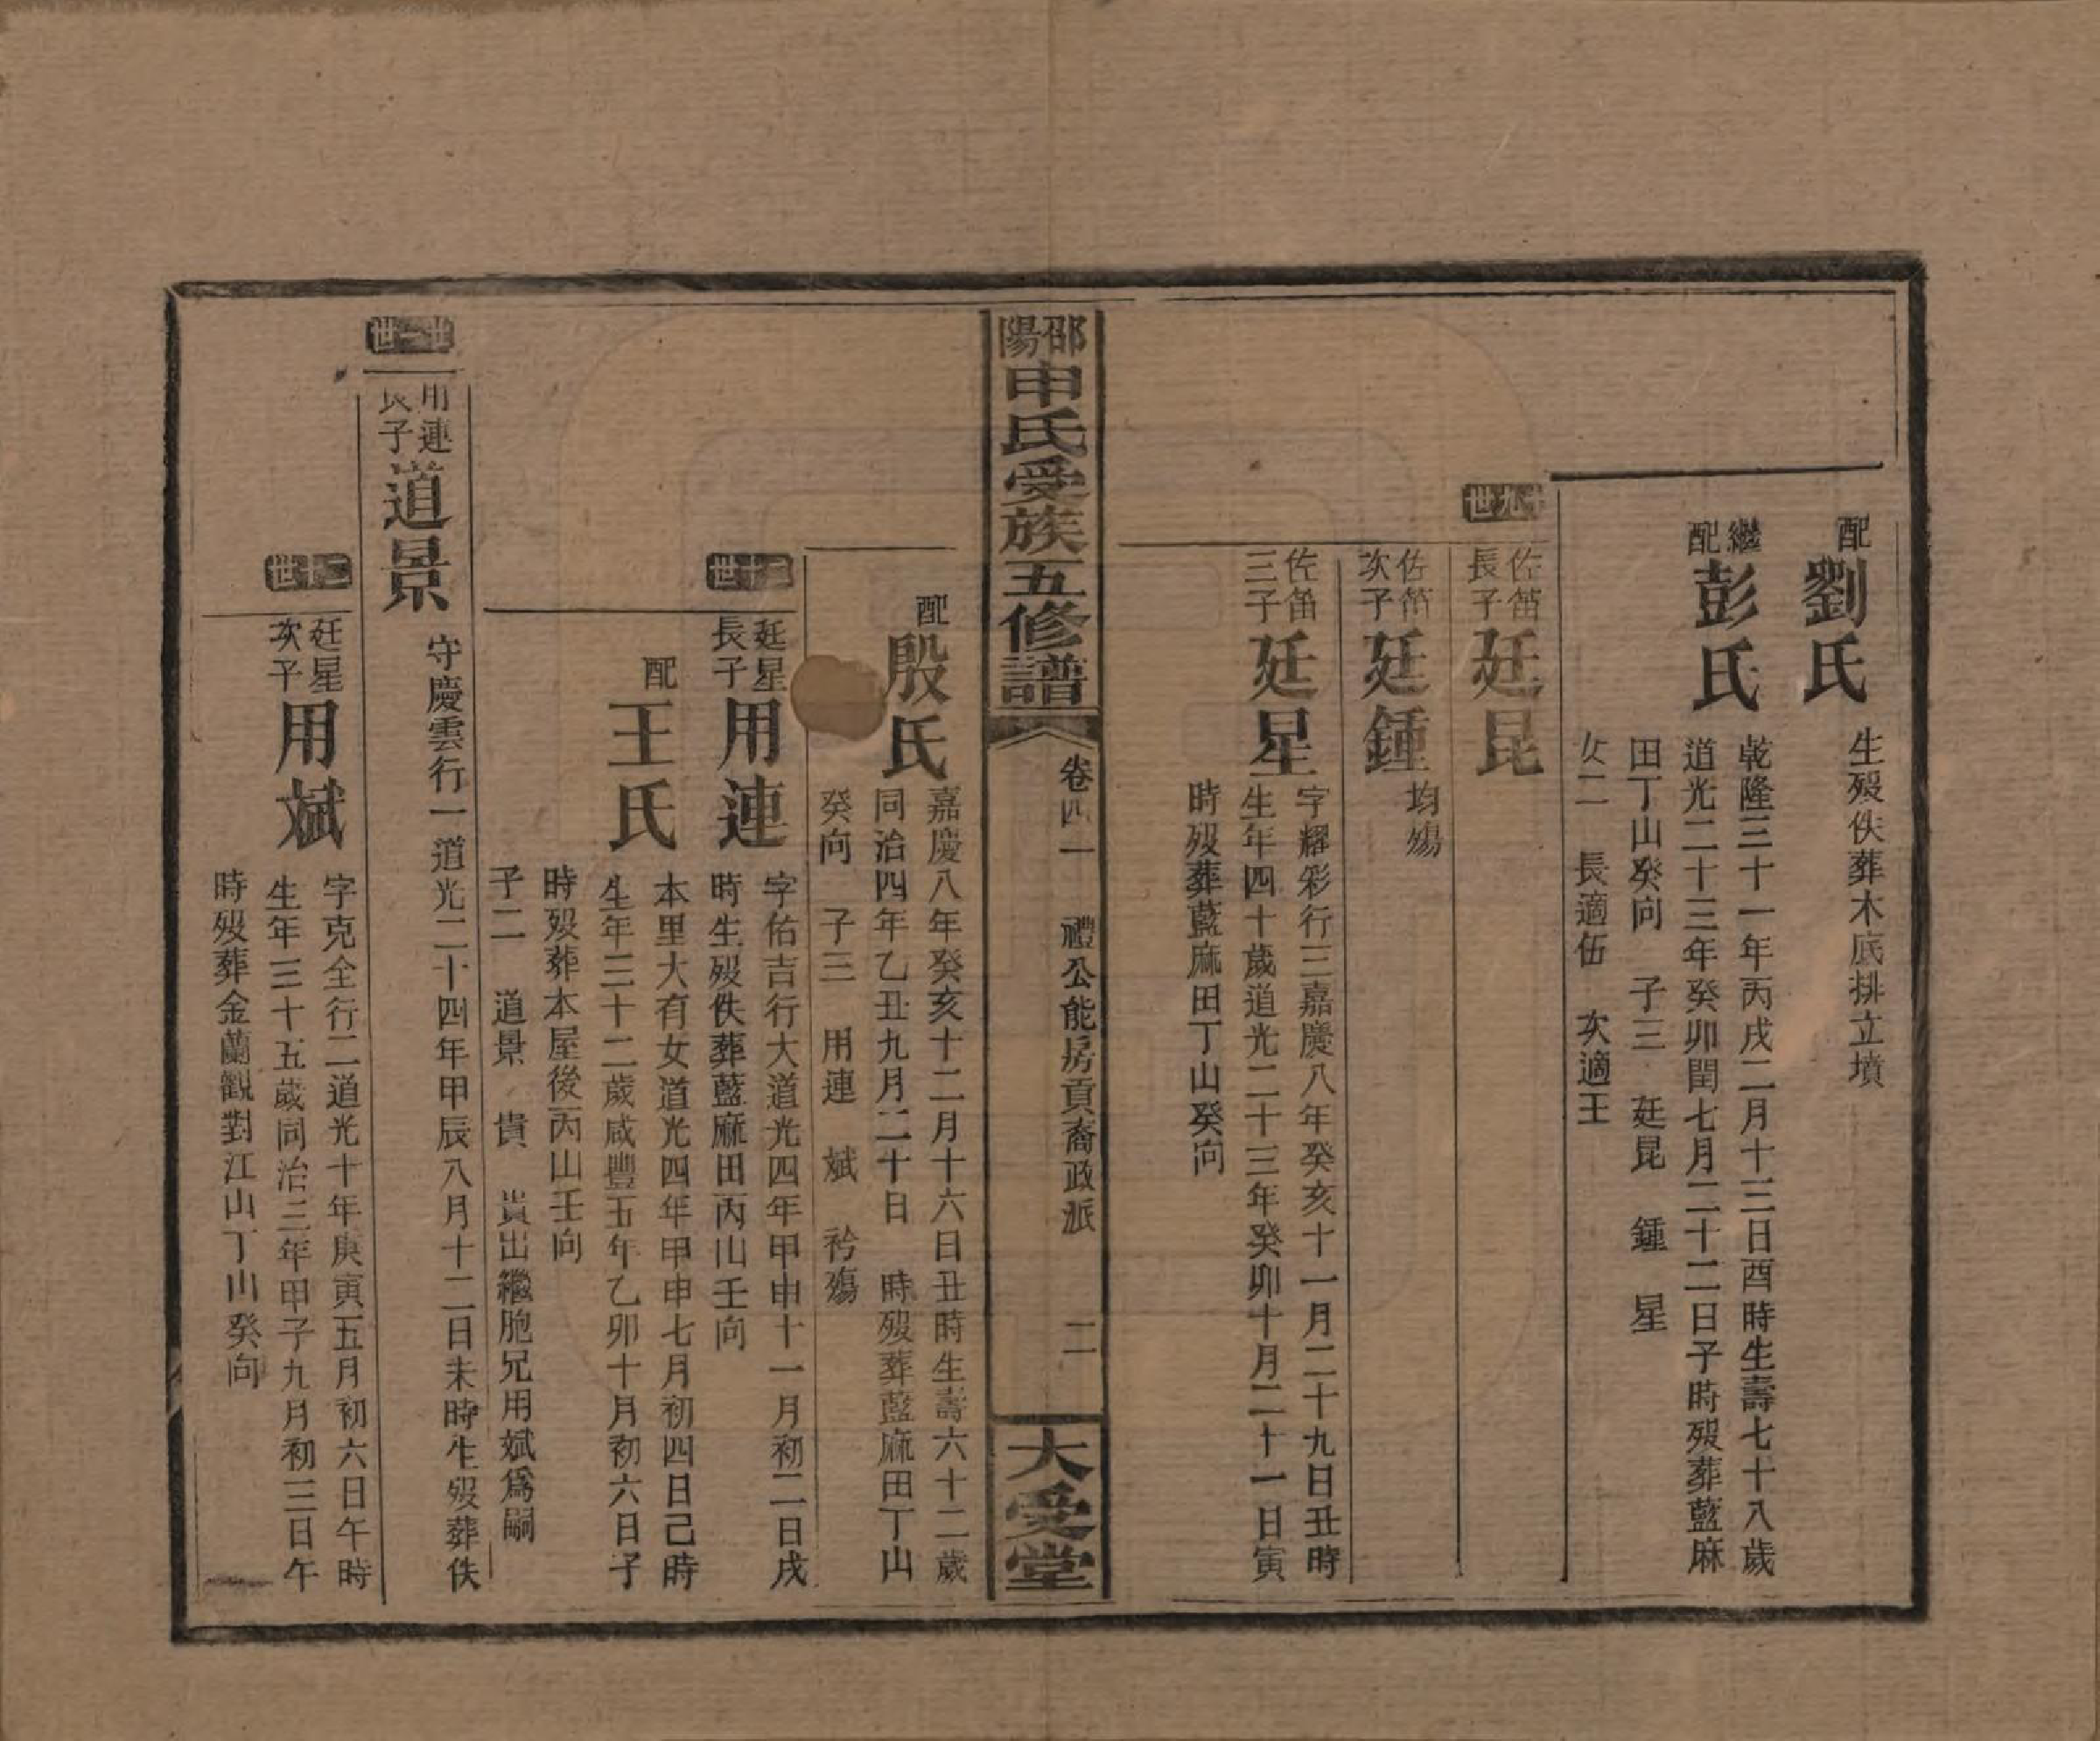 配劉氏
生歿佚葬木底排立墳
繼配彭氏
乾隆三十一年丙戌二月十三日酉時生壽七十八歲
道光二十三年癸卯閏七月二十二日子時歿葬藍麻
田丁山癸向 子三 廷昆 鍾 星
女二 長適伍 次適王
十九世
佐笛長子廷昆
佐笛次子廷鍾
均殤
佐笛三子廷星
字耀彩行三嘉慶八年癸亥十一月二十九日丑時
生年四十歲道光二十三年癸卯十月二十一日寅
時歿葬藍麻田丁山癸向
邵陽申氏受族五修譜
卷四一 禮公能房貢裔政派 二
大受堂
配殷氏
嘉慶八年癸亥十二月十六日丑時生壽六十二歲
同治四年乙丑九月二十日 時歿葬藍麻田丁山
癸向 子三 用連 斌 衿殤
二十世
廷星長子用連
字佑吉行大道光四年甲申十一月初二日戌
時生歿佚葬藍麻田丙山壬向
配王氏
本里大有女道光四年甲申七月初四日己時
生年三十二歲咸豐五年乙卯十月初六日子
時歿葬本屋後丙山壬向
子二 道景 貴 貴出繼胞兄用斌爲嗣
廿一世
用連長子道景
守慶雲行一道光二十四年甲辰八月十二日未時生歿葬佚
二十世
廷星次子用斌
字克全行二道光十年庚寅五月初六日午時
生年三十五歲同治三年甲子九月初三日午
時歿葬金蘭觀對江山丁山癸向